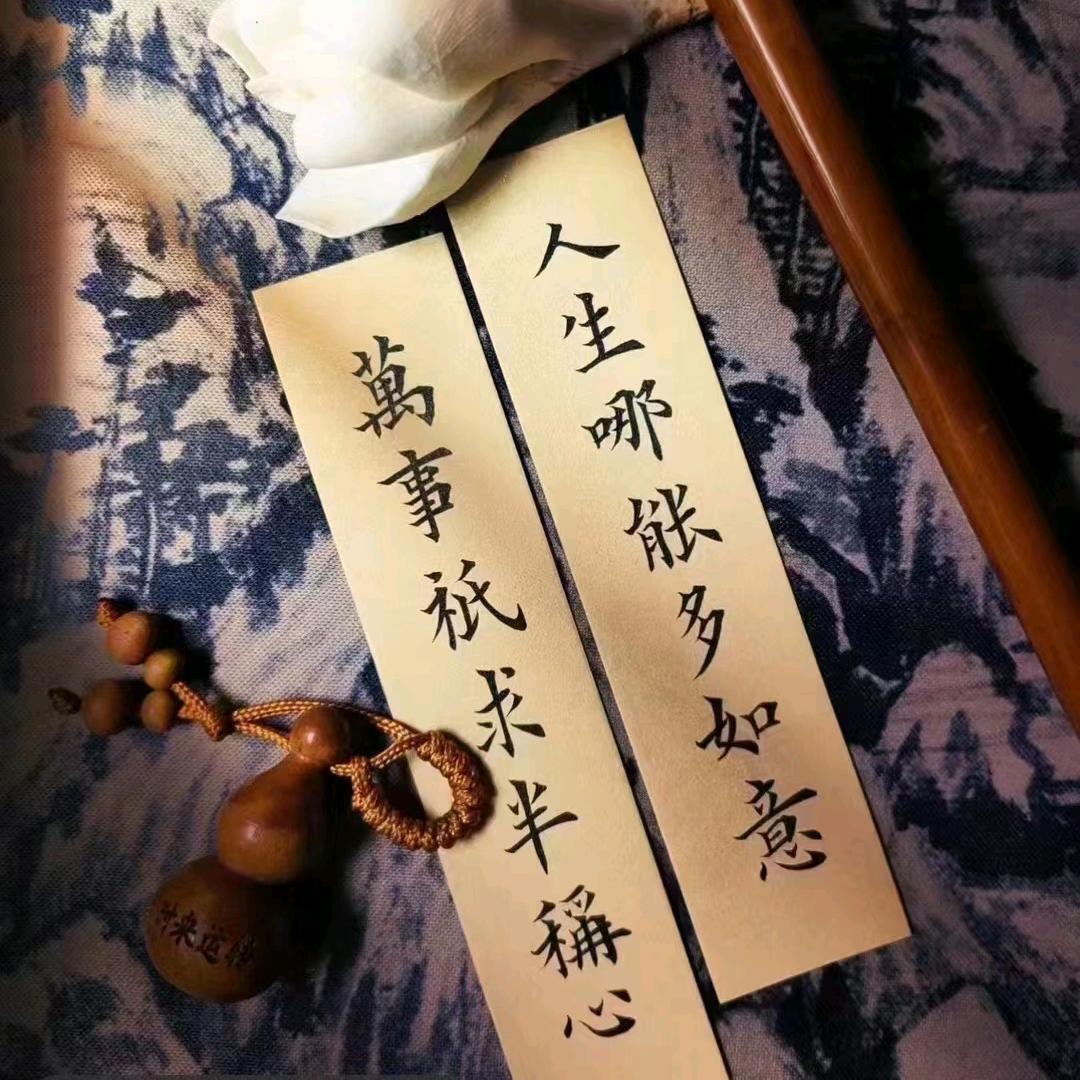 人生哪能多如意
萬事祇求半稱心
时来运转